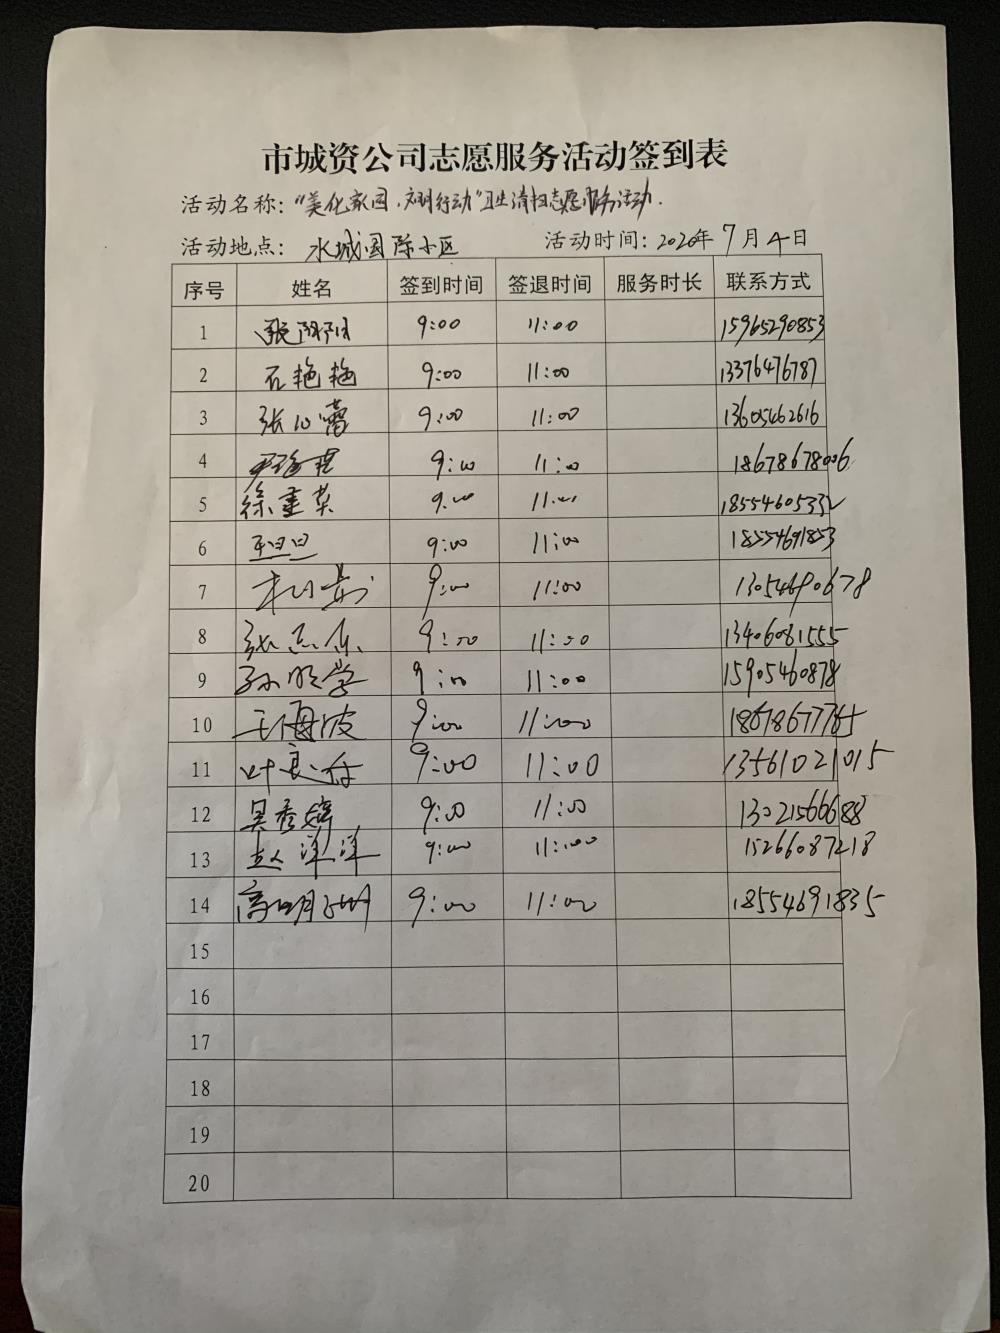 市城资公司志愿服务活动签到表
活动名称："美化家园，文明行动"卫生清扫志愿服务活动.
活动地点：水城国际小区 活动时间：2020年7月4日
序号 姓名 签到时间 签退时间 服务时长 联系方式
1 张阳阳 9:00 11:00 15965290853
2 石艳艳 9:00 11:00 13376476787
3 张心蕾 9:00 11:00 13605462616
4 9:00 11:00 18678678006
5 徐重英 9:00 11:00 18554605332
6 9:00 11:00 18554691853
7 9:00 11:00 13054690678
8 张志东 9:00 11:00 13406081555
9 孙明学 9:00 11:00 15905460878
10 王海波 9:00 11:00 18678677785
11 叶良存 9:00 11:00 13561021015
12 吴秀婷 9:00 11:00 13021566688
13 赵洋洋 9:00 11:00 15266087218
14 高明月 9:00 11:00 18554691835
15
16
17
18
19
20